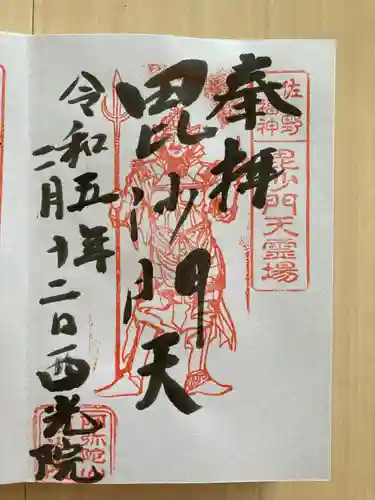 奉拝
佐野
福神
毘沙門天霊場
毘沙門天
令和五年
二月十二日
西光院